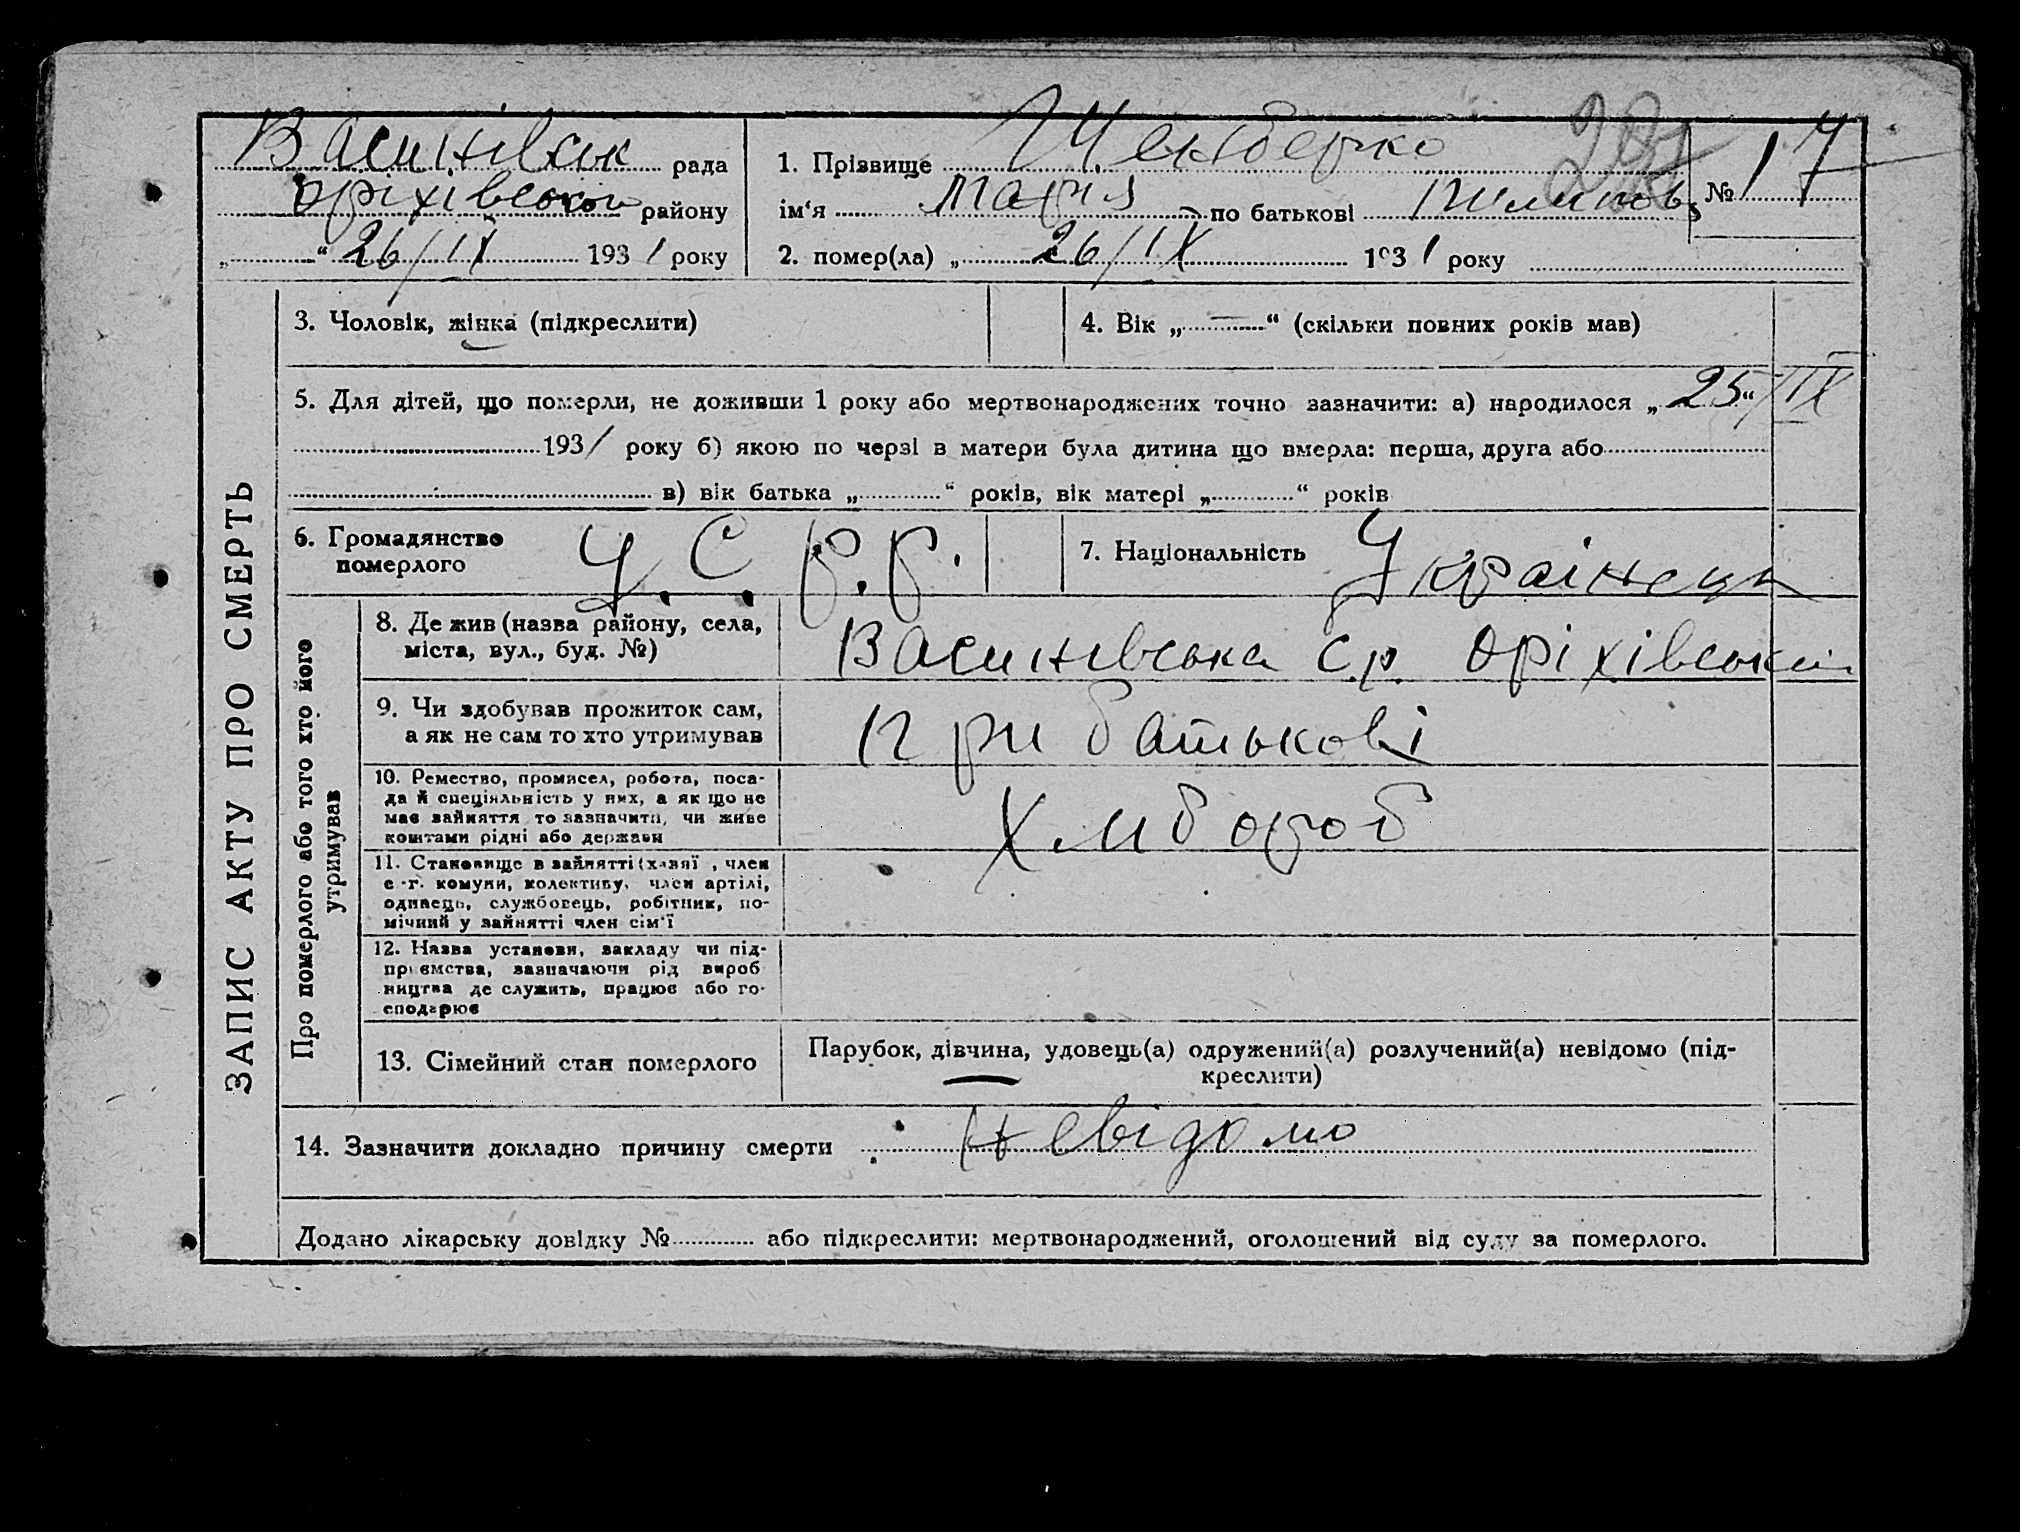 Василівськ рада
Оріхівської району
„ “ 26/IX 1931 року
1. Прізвище
ім‘я Марія по батькові Пилипов
№ 17
2. помер(ла) „ 26/IX 1931 року
ЗАПИС АКТУ ПРО СМЕРТЬ
3. Чоловік, жінка (підкреслити)
4. Вік „ — “ (скільки повних років мав)
5. Для дітей, що померли, не доживши 1 року або мертвонароджених точно зазначити: а) народилося „ 25 “ /IX
1931 року б) якою по черзі в матери була дитина що вмерла: перша, друга або
в) вік батька „ “ років, вік матері „ “ років
6. Громадянство
померлого
У. С. Р. Р.
7. Національність Украінець
Про померлого або того хто його
утримував
8. Де жив (назва району, села,
міста, вул., буд. №)
Василівська с.р. Оріхівський
9. Чи здобував прожиток сам,
а як не сам то хто утримував
при батькові
10. Ремество, промисел, робота, поса-
да й спеціяльність у них, а як що не
має зайняття то зазначити, чи живе
коштами рідні або держави
Хлібороб
11. Становище в зайнятті (хазяї , член
с.-г. комуни, колективу, член артілі,
одинець, службовець, робітник, по-
мічний у зайнятті член сім‘ї
12. Назва установи, закладу чи під-
приємства, зазначаючи рід вироб
ництва де служить, працює або го-
сподарює
13. Сімейний стан померлого
Парубок, дівчина, удовець(а) одружений(а) розлучений(а) невідомо (під-
креслити)
14. Зазначити докладно причину смерти Невідомо
Додано лікарську довідку № або підкреслити: мертвонароджений, оголошений від суду за померлого.